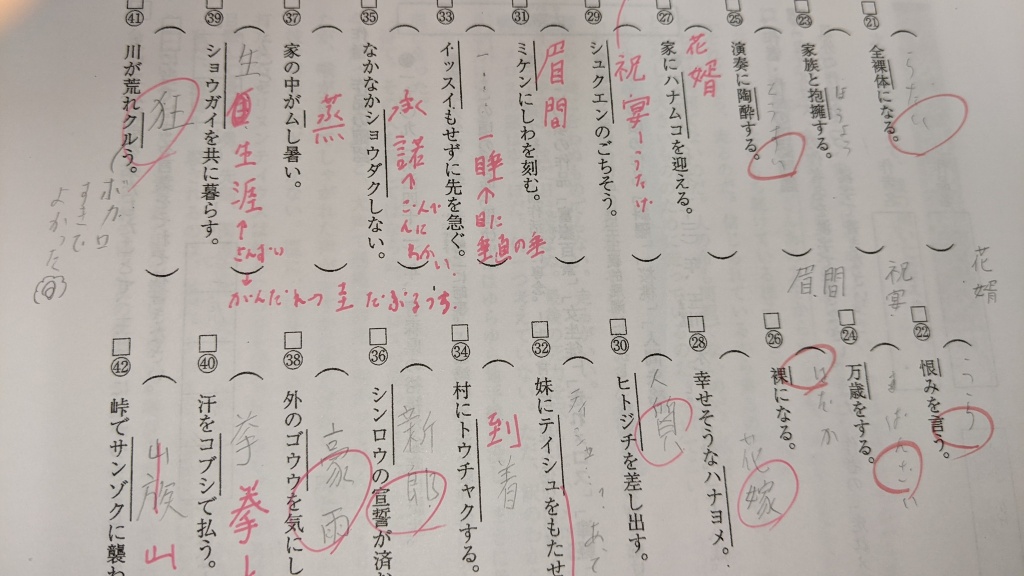 ㉑ 全裸体になる。
らたい
㉓ 家族と抱擁する。
ほうよう
㉕ 演奏に陶酔する。
とうすい
㉗ 家にハナムコを迎える。
花婿
㉙ シュクエンのごちそう。
祝宴ーうたげ
㉛ ミケンにしわを刻む。
眉間
㉝ イッスイもせずに先を急ぐ。
一睡
↑
目に
垂直の垂
㉟ なかなかショウダクしない。
諾
㊲ 家の中がムし暑い。
蒸
㊴ ショウガイを共に暮らす。
生
生涯
↑
さんずい
がんだれつ 圭
㊶ 川が荒れクルう。
狂
ボカロ
すきで
よかった
花婿
祝宴
眉間
㉒ 恨みを言う。
うら
㉔ 万歳をする。
ばんざい
㉖ 裸になる。
はだか
㉘ 幸せそうなハナヨメ。
花嫁
㉚ ヒトジチを差し出す。
人質
㉜ 妹にテイシュをもたせ
㉞ 村にトウチャクする。
到着
㊱ シンロウの宣誓が済
新郎
㊳ 外のゴウウを気にし
豪雨
㊵ 汗をコブシで払う。
拳
㊷ 峠でサンゾクに襲わ
山族
山